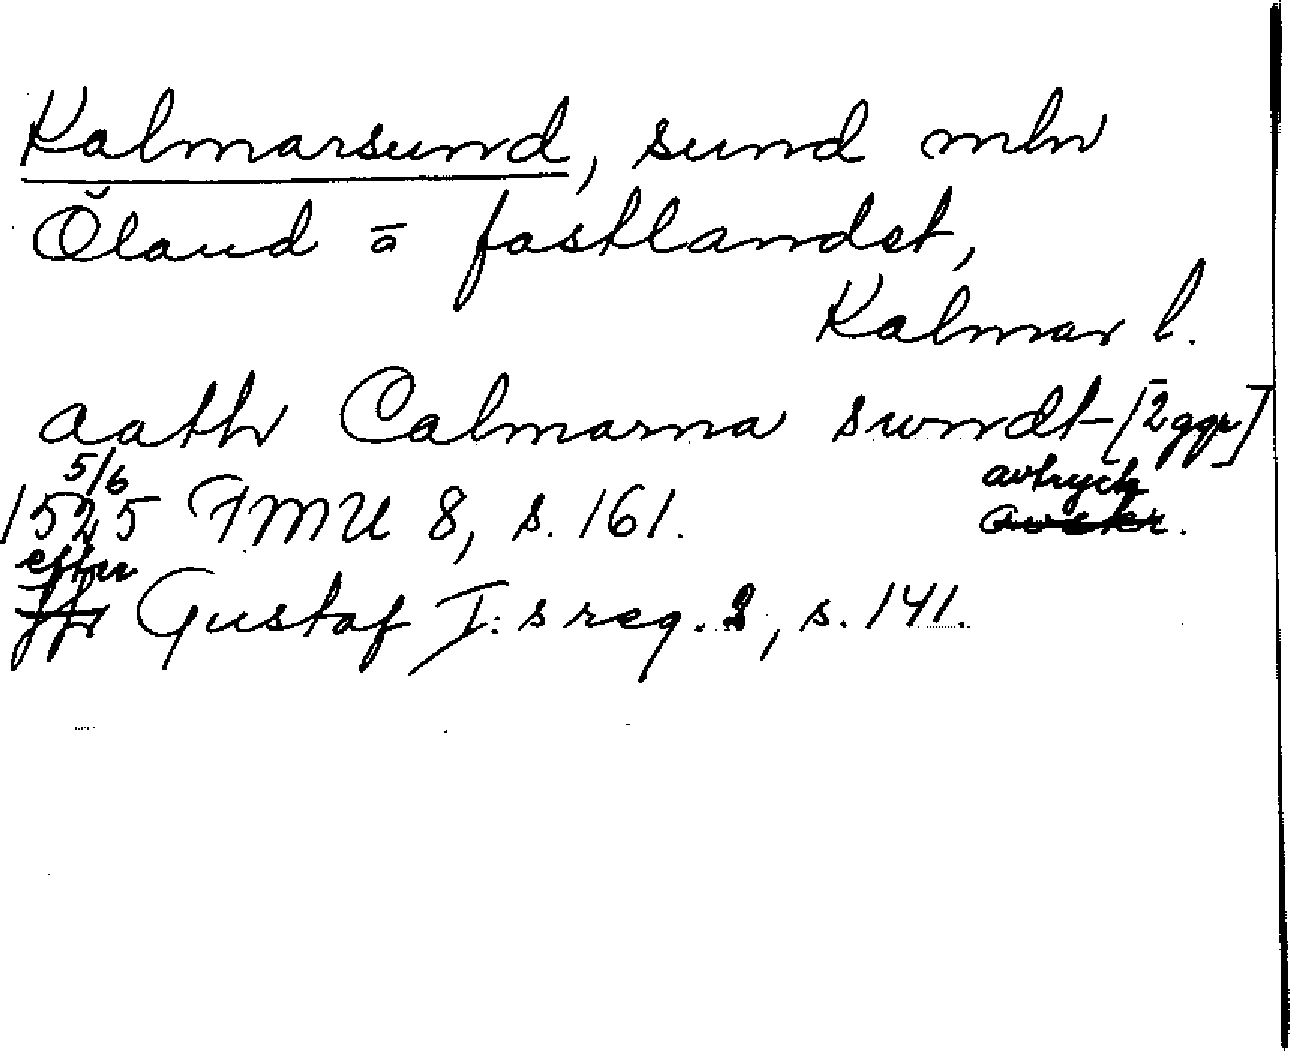 Kalmarsund, sund mln
Öland o fastlandet,
Kalmar l.
aath Calmarna swndt [2 ggr]
5/6 avtryck
1525 FMU 8, s. 161. avskr.
efter
Gustaf I:s reg. 2, s. 141.